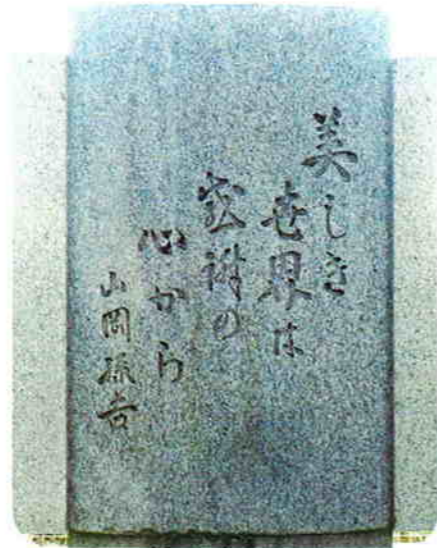 美しき
世界は
感謝の
心から
山岡孫吉